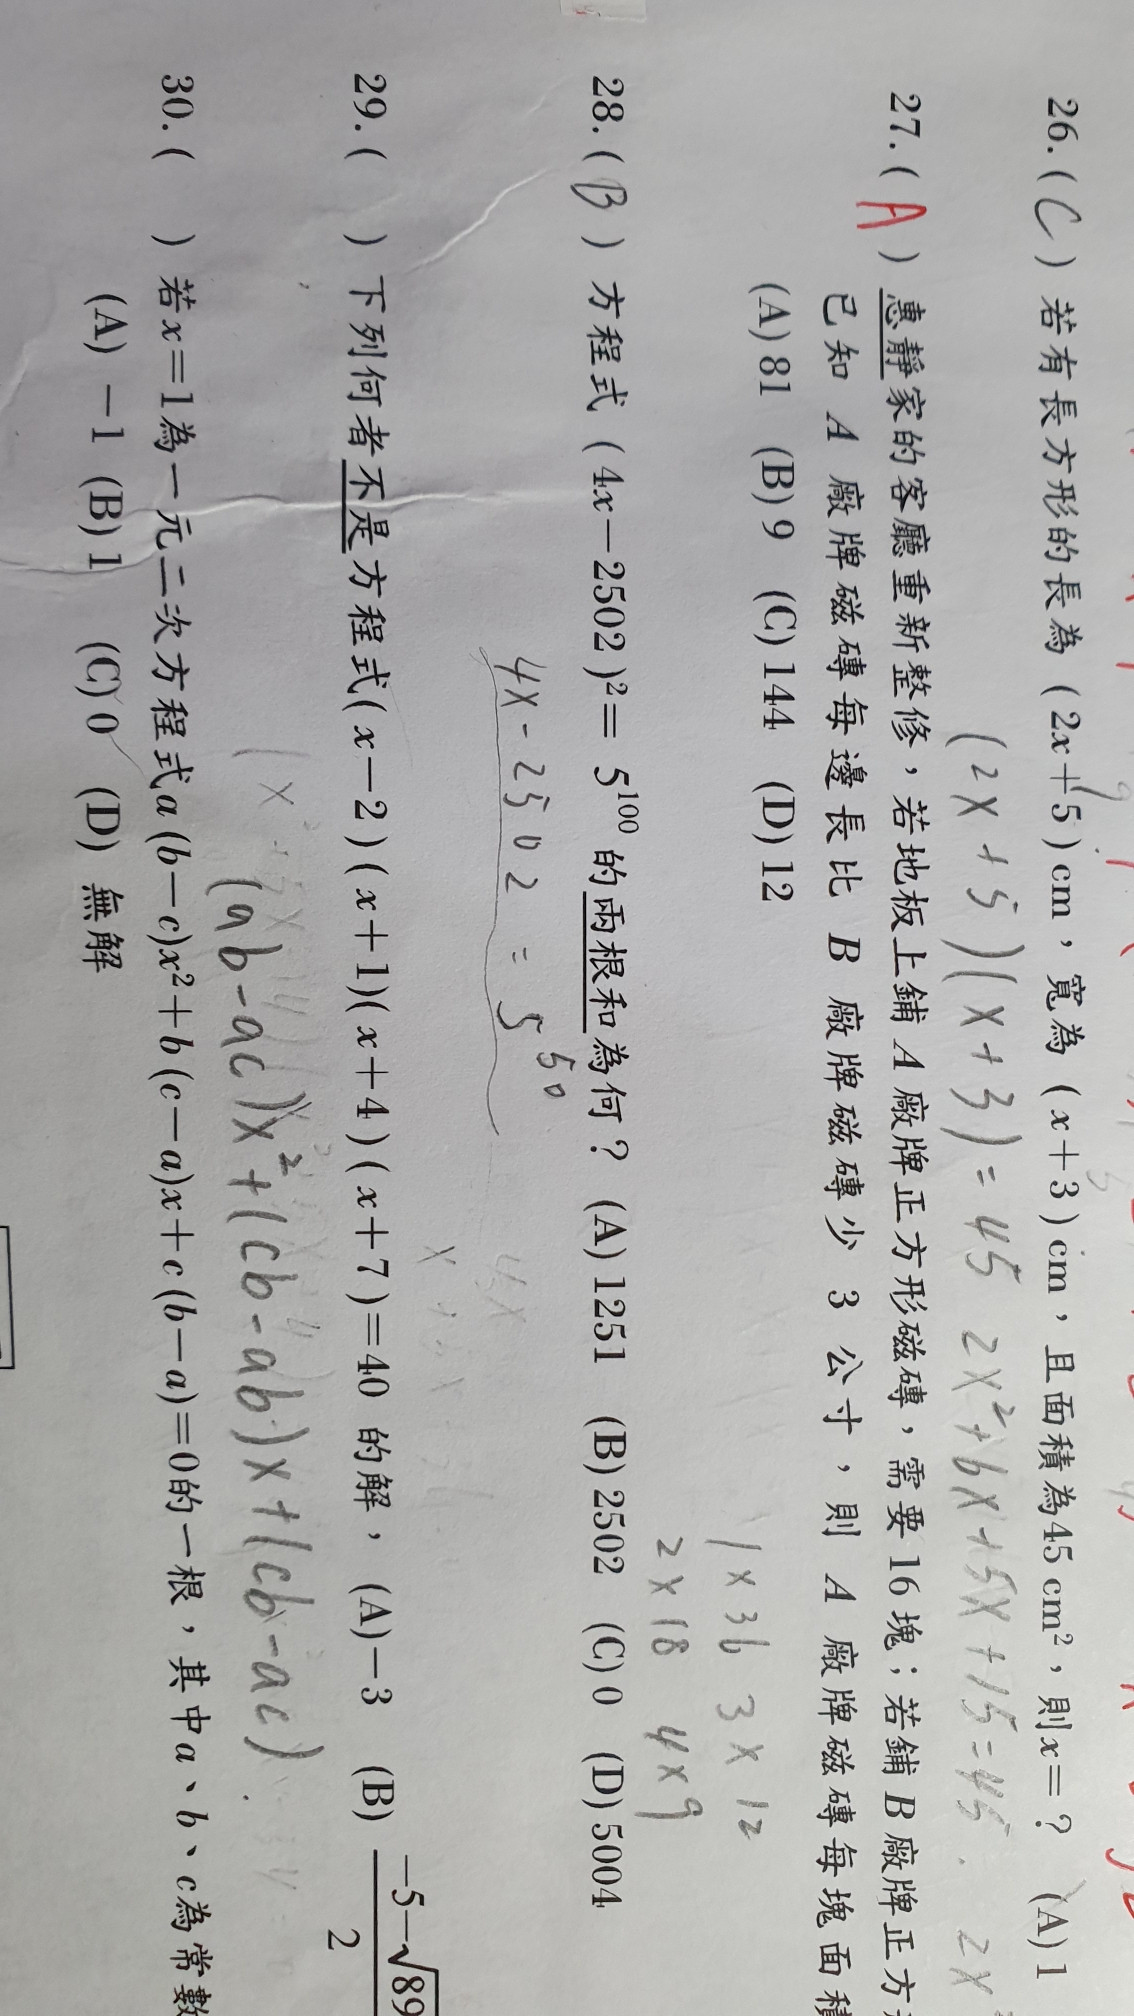 26.( C ) 若有長方形的長為 (2x+5)cm，寬為 (x+3)cm，且面積為45 cm²，則x=？ (A)1
(2x+5)(x+3)=45 2x²+6x+5x+15=45. 2x
27.( A ) 惠靜家的客廳重新整修，若地板上鋪 A 廠牌正方形磁磚，需要 16 塊；若鋪 B 廠牌正方
已知 A 廠牌磁磚每邊長比 B 廠牌磁磚少 3 公寸，則 A 廠牌磁磚每塊面積
(A) 81 (B) 9 (C) 144 (D) 12
1×36 3×12
2×18 4×9
28.( B ) 方程式 (4x－2502)²= 5¹⁰⁰ 的兩根和為何？ (A) 1251 (B) 2502 (C) 0 (D) 5004
4x-2502=5⁵⁰
4x
29.( ) 下列何者不是方程式(x－2)(x+1)(x+4)(x+7)=40 的解， (A)－3 (B) －5－√89／2
(ab-ac)x²+(cb-ab)x+(cb-ac)
30.( ) 若x=1為一元二次方程式a(b－c)x²+b(c－a)x+c(b－a)=0的一根，其中a、b、c為常數
(A) －1 (B) 1 (C) 0 (D) 無解